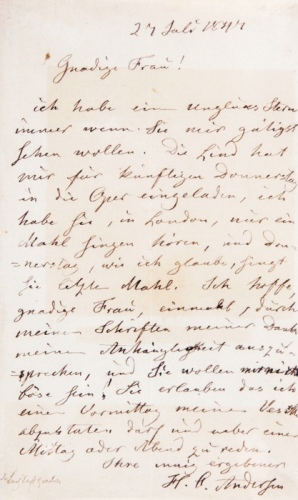 27 Juli 1847
Gnädige Frau!
ich habe ein unglücks Stern
immer wenn Sie mir gütigst
sehen wollen. Die Lind hat
mir für künftigen Donnerstag
in die Oper eingeladen, ich
habe sie, in London, nur ein
Mahl singen hören, und Don-
=nerstag, wie ich glaube, singt
sie letzte Mahl. Ich hoffe,
gnädige Frau, einmahl, durch
meine Schriften meiner Dank
meinen Anhänglichkeit auszu-
=sprechen, und Sie wollen mir nicht
böse sein! Sie erlauben das ich
einen Vormittag meinen
abzustaten darf und ueber einen
Mittag oder Abend zu reden.
Ihre innig ergebener
H. C. Andersen